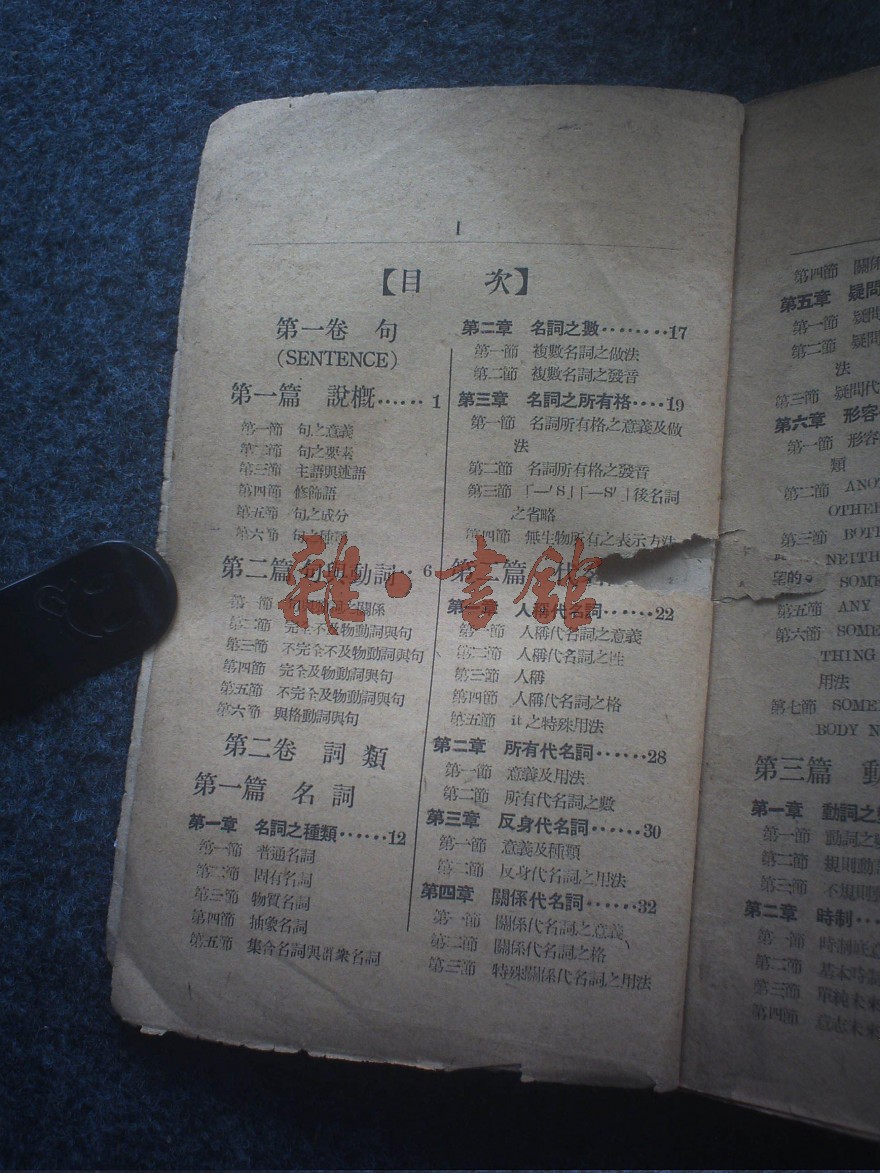 I
【目 次】
第一卷 句
(SENTENCE)
第一篇 說概……1
第一節 句之意義
第二節 句之要素
第三節 主語與述語
第四節 修飾語
第五節 句之成分
第六節 句之種類
第二篇 句與動詞‥6
第一節 句與動詞之關係
第二節 完全不及物動詞與句
第三節 不完全不及物動詞與句
第四節 完全及物動詞與句
第五節 不完全及物動詞與句
第六節 與格動詞與句
第二卷 詞類
第一篇 名詞
第一章 名詞之種類……12
第一節 普通名詞
第二節 固有名詞
第三節 物質名詞
第四節 抽象名詞
第五節 集合名詞與羣衆名詞
第二章 名詞之數………17
第一節 複數名詞之做法
第二節 複數名詞之發音
第三章 名詞之所有格‥‥19
第一節 名詞所有格之意義及做
法
第二節 名詞所有格之發音
第三節 「—'S」「—S'」後名詞
之省略
第四節 無生物所有之表示方法
第二篇 代
第一章 人稱代名詞……22
第一節 人稱代名詞之意義
第二節 人稱代名詞之性
第三節 人稱
第四節 人稱代名詞之格
第五節 it之特殊用法
第二章 所有代名詞……28
第一節 意義及用法
第二節 所有代名詞之數
第三章 反身代名詞……30
第一節 意義及種類
第二節 反身代名詞之用法
第四章 關係代名詞……32
第一節 關係代名詞之意義
第二節 關係代名詞之格
第三節 特殊關係代名詞之用法
第四節 關係
第五章 疑問
第一節 疑問
第二節 疑問
法
第三節 疑問代
第六章 形容
第一節 形容
類
第二節 ANO
OTHER
第三節 BOTH
NEITH
SOM
第五節 ANY
第六節 SOME
THING
用法
第七節 SOME
BODY N
第三篇 動
第一章 動詞之
第一節 動詞之
第二節 規則動
第三節 不規則
第二章 時制‥
第一節 時制底意
第二節 基本時制
第三節 單純未來
第四節 意志未來
雜·書館